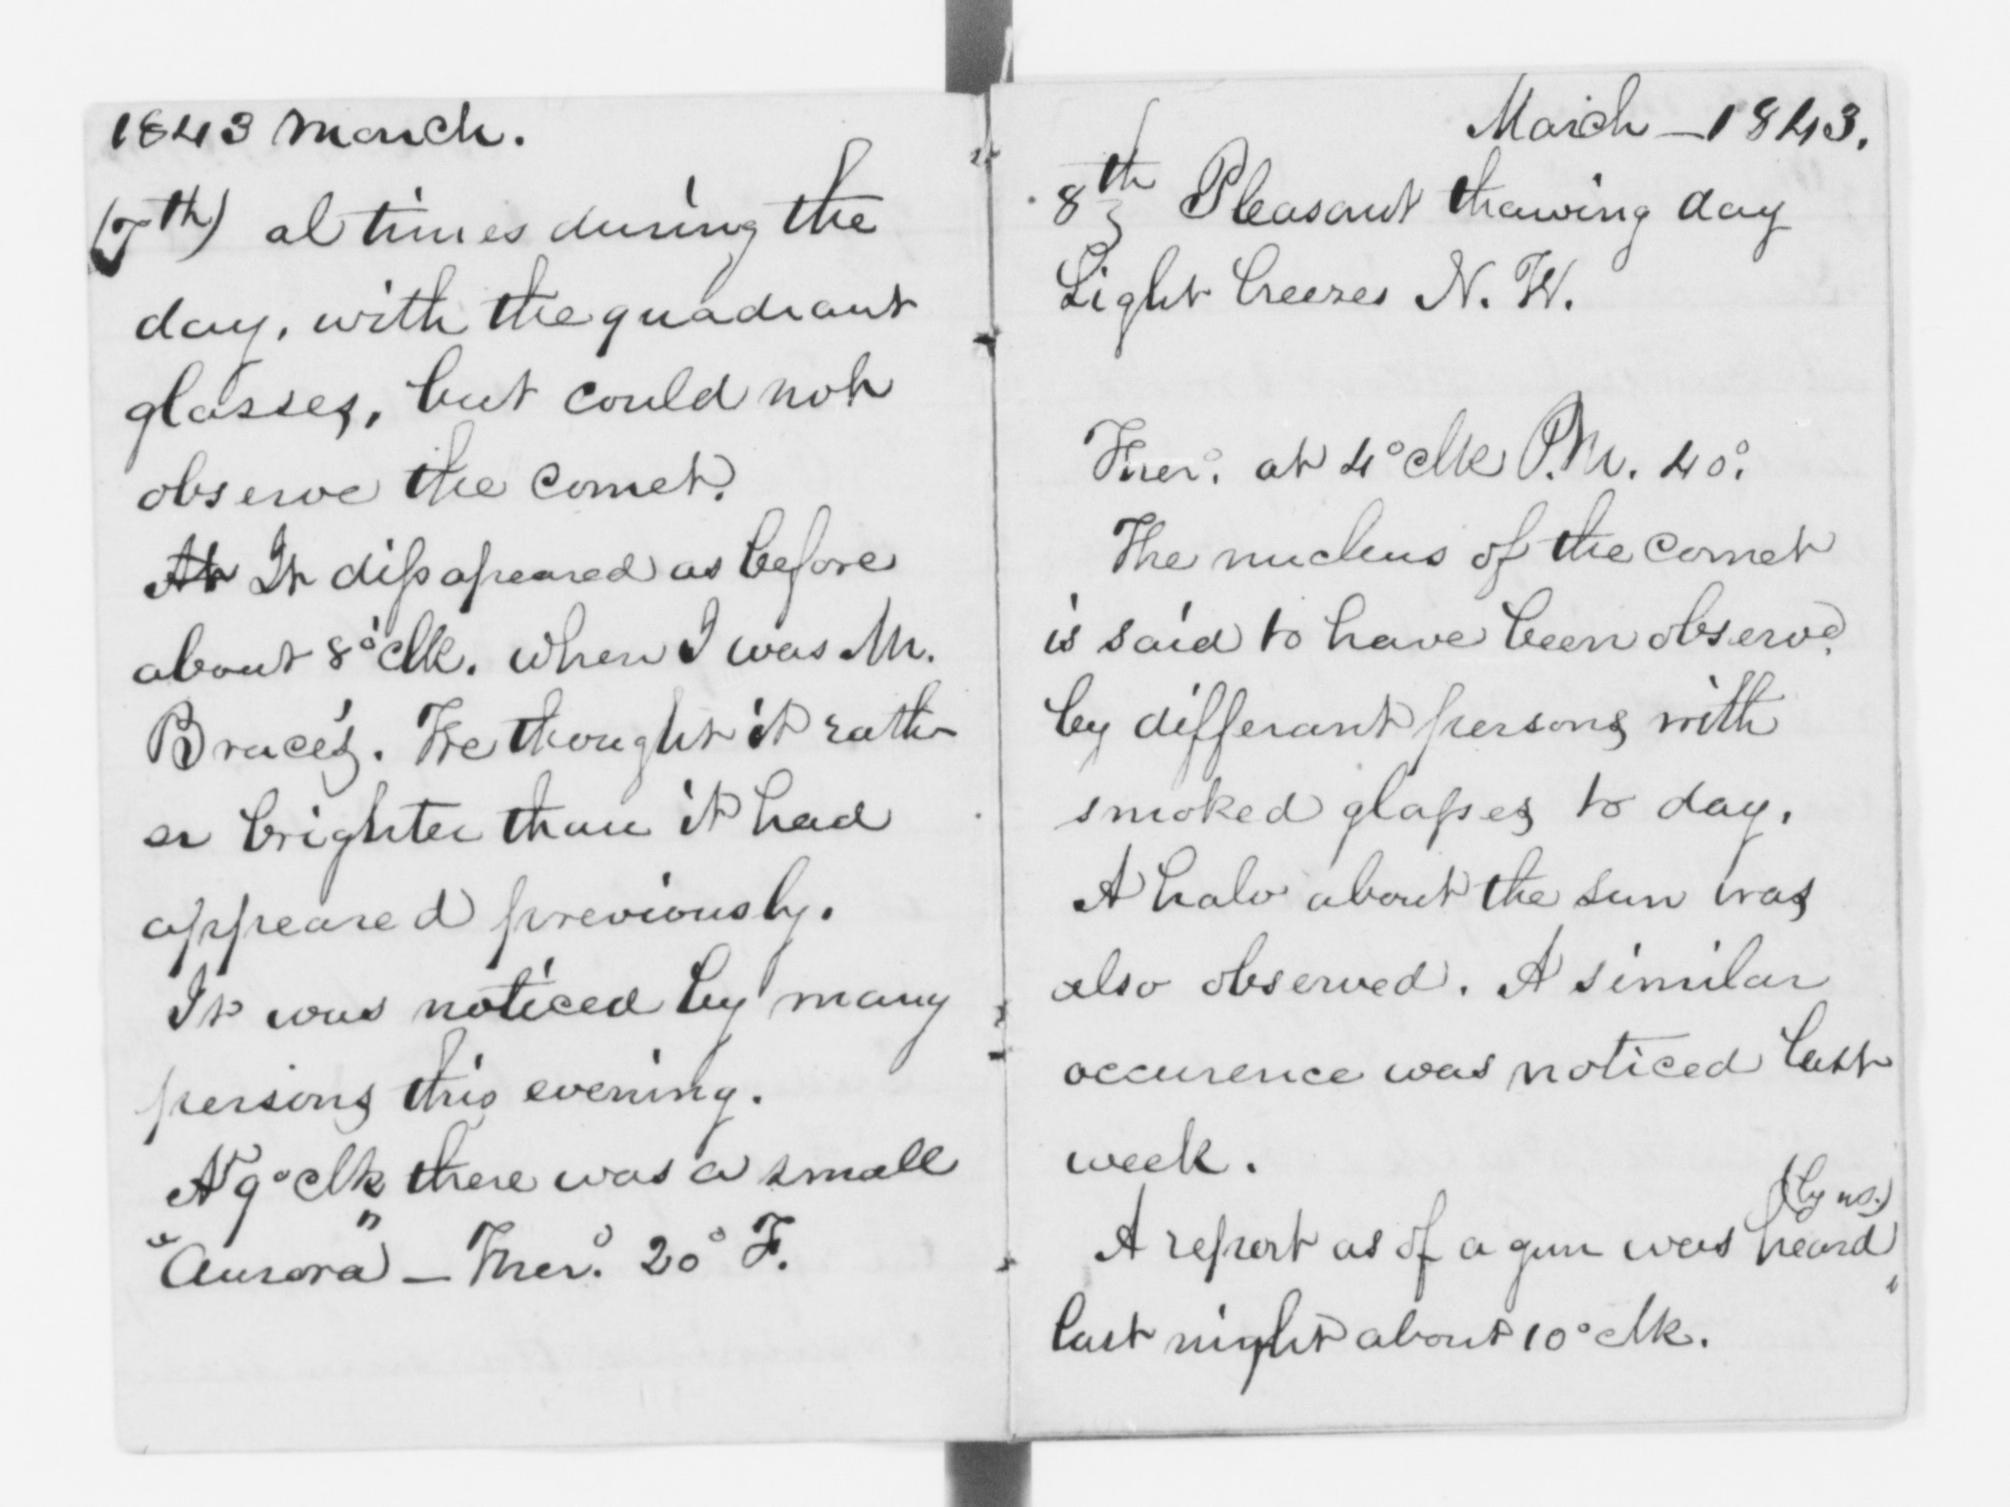 1843 March.
(7th) at times during the
day, with the quadrant
glasses, but could not
observe the comet.
At It dissapeared as before
about 8 o'clk. when I was M.
Brace's. We thought it rath-
er brighter than it had
appeared previously.
It was noticed by many
persons this evening.
At 9 oclk there was a small
"Aurora" — Ther. 20° F.
March — 1843.
8th Pleasant thawing day
Light breezes N. W.
Ther. at 4 oclk P.M. 40°.
The nucleus of the comet
is said to have been observd.
by differant persons with
smoked glasses to day.
A halo about the sun was
also observed. A similar
occurence was noticed last
week.
(by us.)
A report as of a gun was heard
last night about 10 oclk.